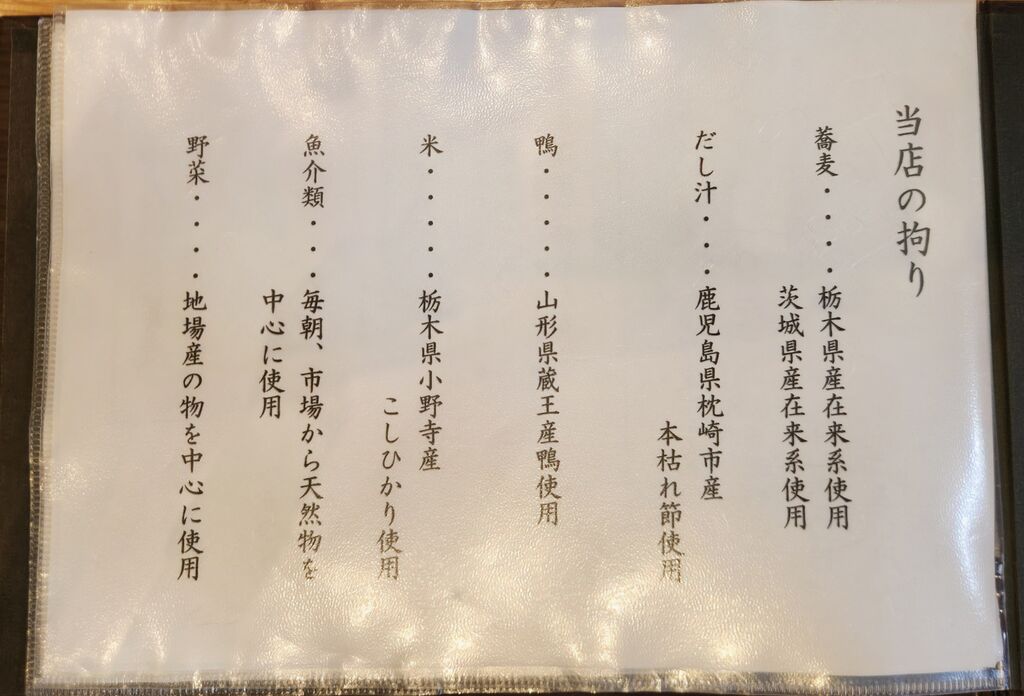 当店の拘り
蕎麦・・・・栃木県産在来系使用
茨城県産在来系使用
だし汁・・・鹿児島県枕崎市産
本枯れ節使用
鴨・・・・・山形県蔵王産鴨使用
米・・・・・栃木県小野寺産
こしひかり使用
魚介類・・・毎朝、市場から天然物を
中心に使用
野菜・・・・地場産の物を中心に使用